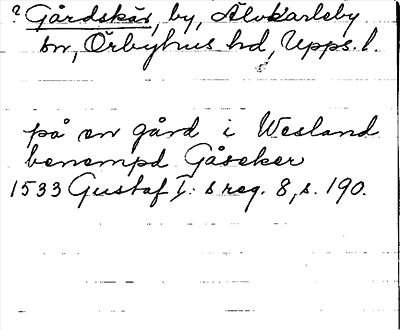 ? Gårdskär, by, Älvkarleby
sn, Örbyhus hd, Upps. l.
på en gård i Wesland
benempd Gåseker
1533 Gustaf I:s reg. 8, s. 190.